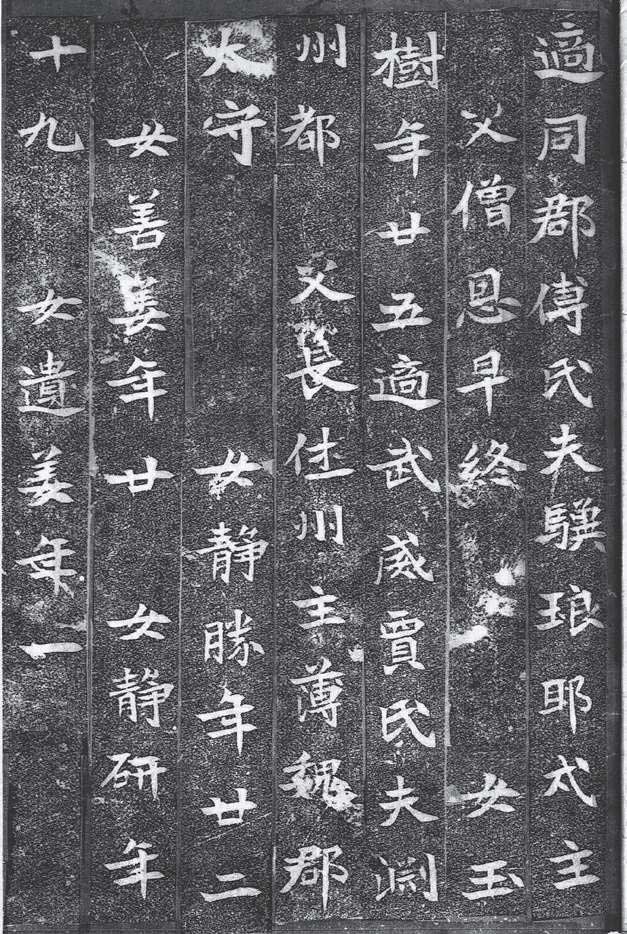 適同郡傅氏夫驥琅耶戈主
父僧恩早終 女玉
樹年廿五適武威賈氏夫渊
州都 父長仕州主薄魏郡
太守 女靜勝年廿二
女善姜年廿 女靜研年
十九 女遺姜年一